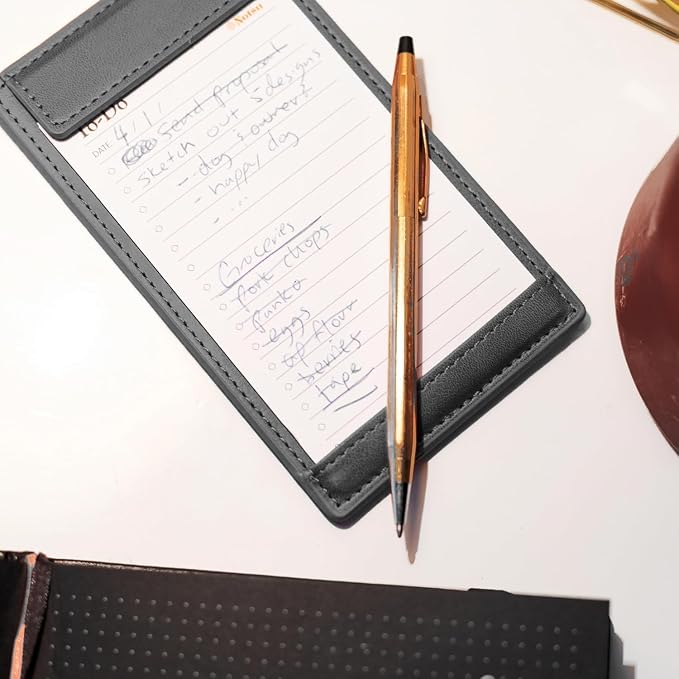 Notsu
To-Do
DATE 4/1/
send proposal
sketch out 5 designs
- dog & owner?
- happy dog
- ...
Groceries
pork chops
panko
eggs
ap flour
berries
tape